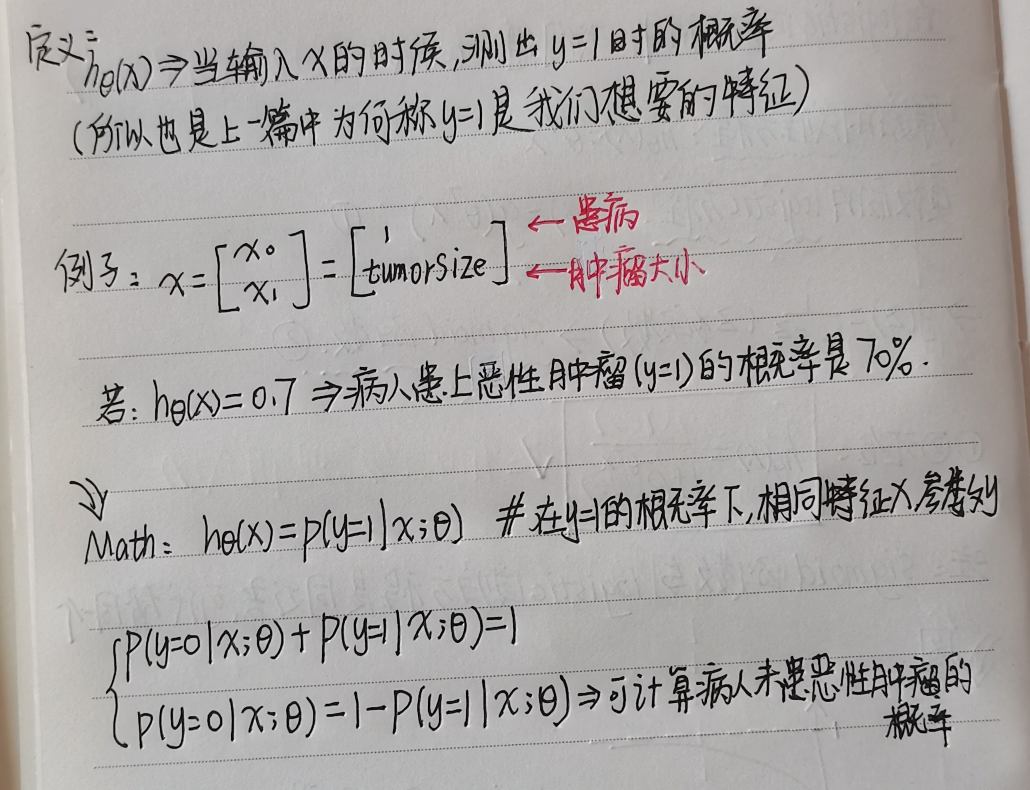 定义: hθ(x) ⇒ 当输入x的时候,测出y=1时的概率
(所以也是上一篇中为何称y=1是我们想要的特征)
例子: x = [x₀ x₁] = [1 tumorSize] ← 患病 ← 肿瘤大小
若: hθ(x) = 0.7 ⇒ 病人患上恶性肿瘤(y=1)的概率是70%.
Math: hθ(x) = p(y=1|x;θ) # 在y=1的概率下,相同特征x,参数θ
P(y=0|x;θ) + P(y=1|x;θ) = 1
P(y=0|x;θ) = 1 - P(y=1|x;θ) ⇒ 可计算病人未患恶性肿瘤的
概率